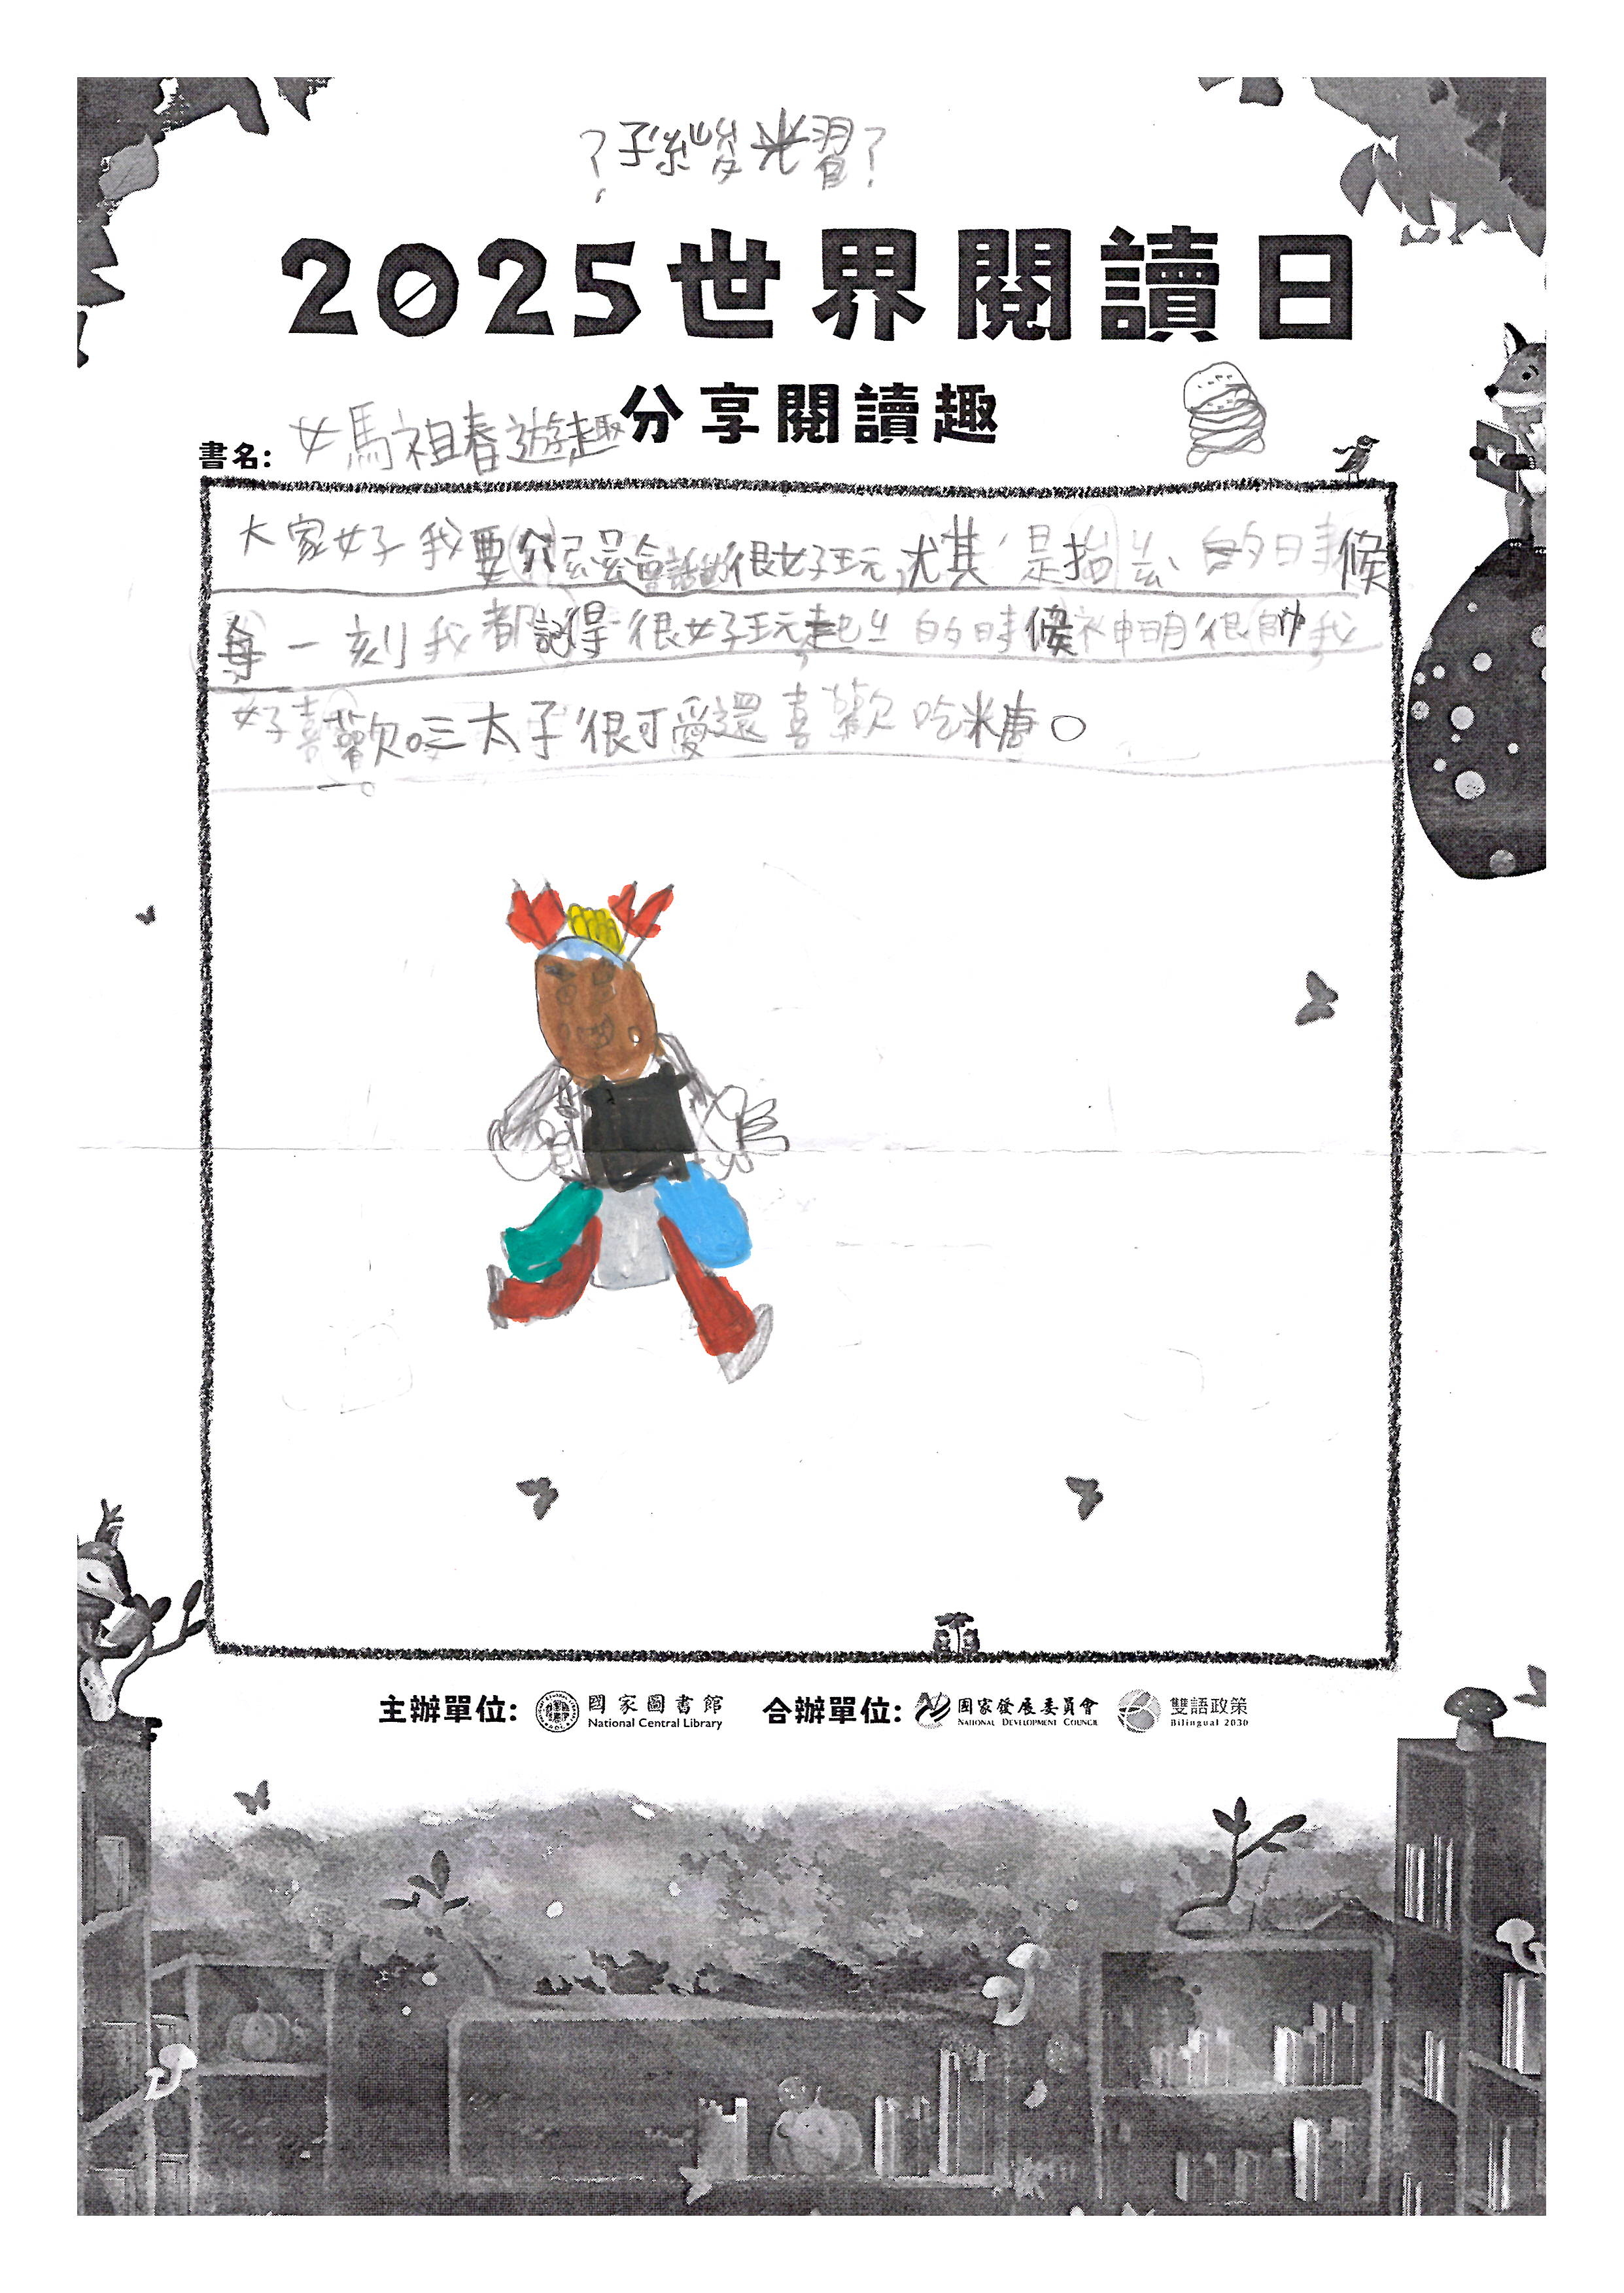 2025世界閱讀日
分享閱讀趣
書名: 媽祖春遊趣
大家好我要 很好玩,尤其是抬 的時候
每一刻我都記得很好玩起 的時候神明很帥我
好喜歡。三太子很可愛還喜歡吃糖。
主辦單位: 國家圖書館 National Central Library 合辦單位: 國家發展委員會 National Development Council 雙語政策 Bilingual 2030